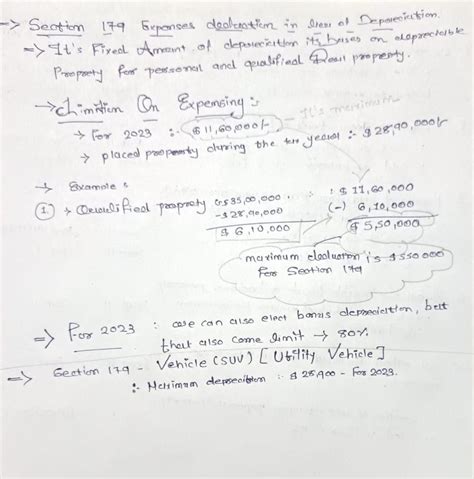 -> Section 179 Expenses deduction in lieu of Depreciation.
=> It's Fixed Amount of depreciation its bases on depreciable
Property for personal and qualified Real property.
-> Limitation On Expensing :-
-> For 2023 :- $ 11,60,000/- - It's maximum
-> placed property during the tax year :- $ 28,90,000/-
-> Example :
① -> Qualified property $ 35,00,000 . : $ 11,60,000
- $ 28,90,000 (-) 6,10,000
$ 6,10,000 $ 5,50,000
maximum deduction is $ 550 000
For Section 179
=> For 2023 : we can also elect bonus depreciation, but
that also come limit -> 80%
=> Section 179 - Vehicle (SUV) [ Utility Vehicle ]
:- Maximum depreciation : $ 28,900 - For 2023.